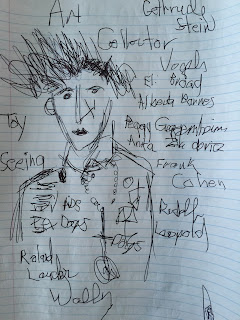 Art
Gertrude
Stein
Collector
Vogels
Eli Broad
Barnes
Peggy Guggenheim
Anita
Toy
Frank
Seeing
Cohen
Dogs
Rudolf
Dogs
Leopold
Lauder
Wally